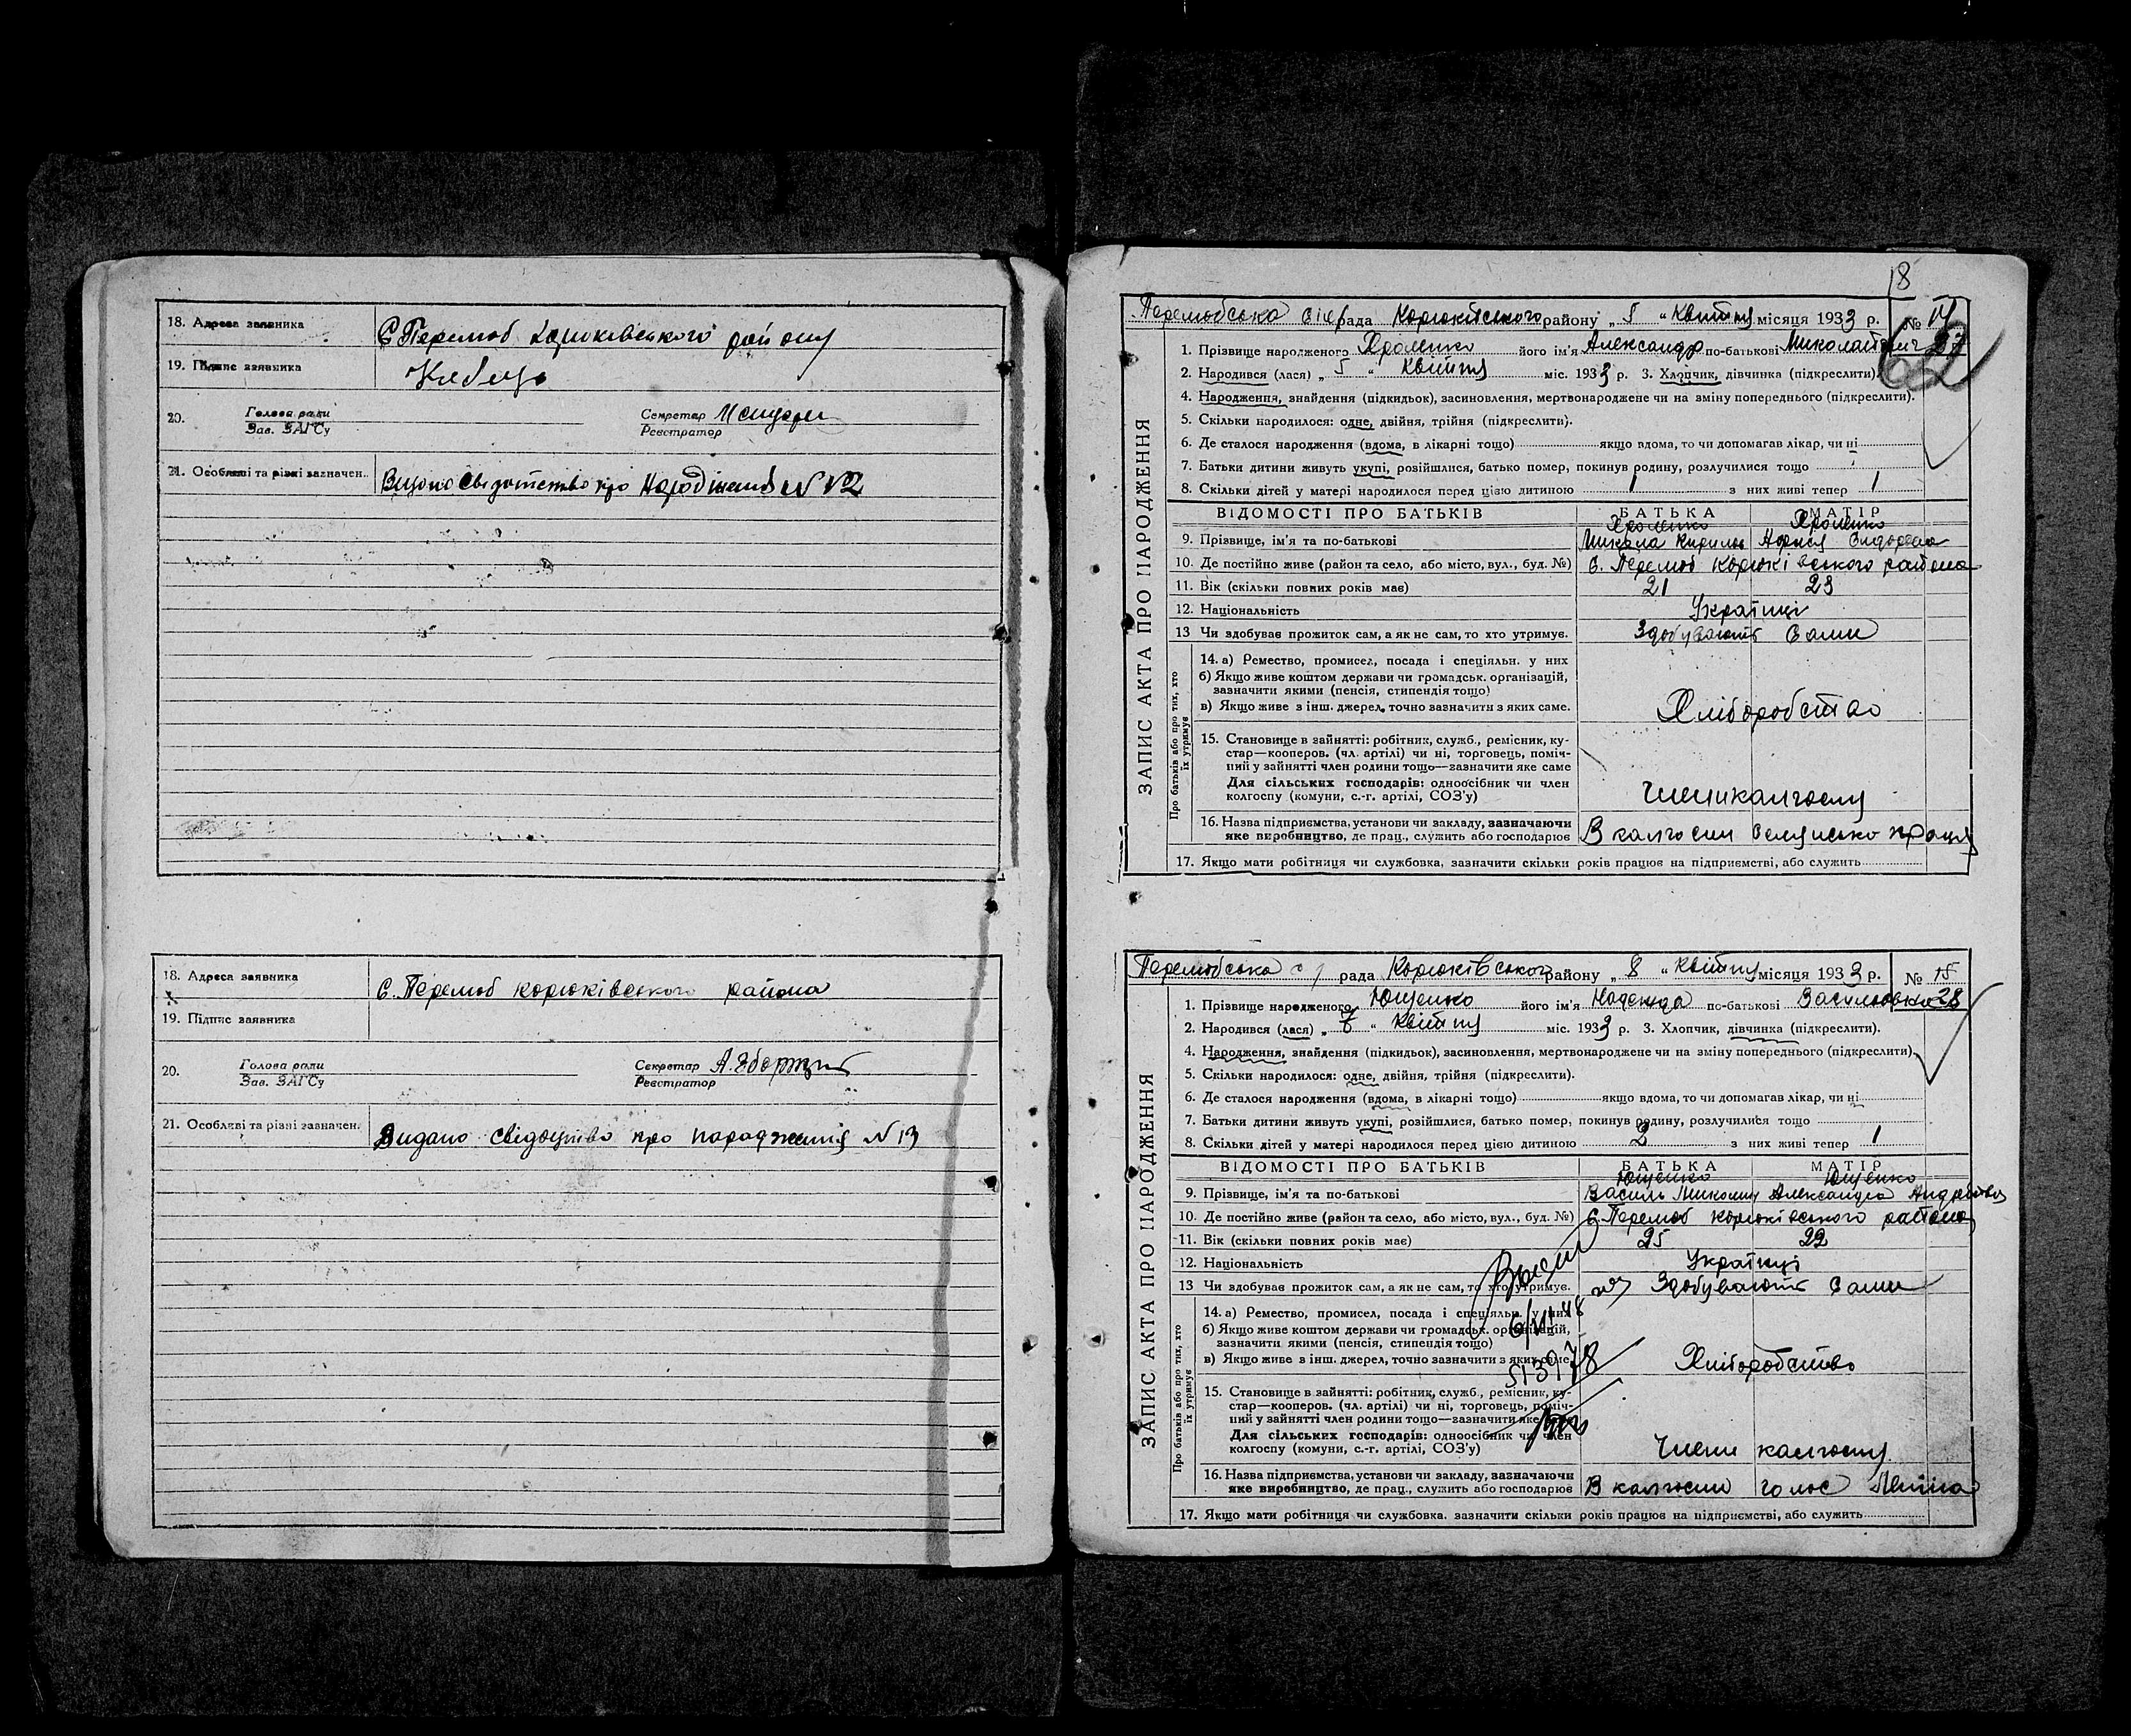 18. Адреса заявника С. Перемоб Корюківського району
19. Підпис заявника
20. Голова ради Секретар
Зав. ЗАГСу Реєстратор
21. Особливі та різні зазначен. Видано свідотство про Народіження N 12
18. Адреса заявника с. Перемоб корюківського района
19. Підпис заявника
20. Голова ради Секретар
Зав. ЗАГСу Реєстратор
21. Особливі та різні зазначен. Видано свідоцтво про народження N 13
18
Перемобська сіл рада Корюківського району „ 5 “ Квітня місяця 1933 р. № 14
1. Прізвище народженого його ім'я Александр по-батькові Миколайович 27
62
2. Народився (лася) „ 5 “ Квітня міс. 1933 р. 3. Хлопчик, дівчинка (підкреслити).
4. Народження, знайдення (підкидьок), засиновлення, мертвонароджене чи на зміну попереднього (підкреслити).
5. Скільки народилося: одне, двійня, трійня (підкреслити).
6. Де сталося народження (вдома, в лікарні тощо) якщо вдома, то чи допомагав лікар, чи ні
7. Батьки дитини живуть укупі, розійшлися, батько помер, покинув родину, розлучилися тощо
8. Скільки дітей у матері народилося перед цією дитиною 1 з них живі тепер 1
ЗАПИС АКТА ПРО НАРОДЖЕННЯ
ВІДОМОСТІ ПРО БАТЬКІВ БАТЬКА МАТІР
9. Прізвище, ім'я та по-батькові Микола Кирилов
10. Де постійно живе (район та село, або місто, вул., буд. №) С. Перемоб Корюківського района
11. Вік (скільки повних років має) 21 23
12. Національність Українці
13 Чи здобуває прожиток сам, а як не сам, то хто утримує. Здобувають Сами
Про батьків або про тих, хто їх утримує
14. а) Ремество, промисел, посада і спеціяльн. у них
б) Якщо живе коштом держави чи громадськ. організацій,
зазначити якими (пенсія, стипендія тощо)
в) Якщо живе з інш. джерел, точно зазначити з яких саме. Хліборобство
15. Становище в зайнятті: робітник, служб., ремісник, ку-
стар—кооперов. (чл. артілі) чи ні, торговець, поміч-
ний у зайнятті член родини тощо—зазначити яке саме
Для сільських господарів: одноосібник чи член
колгоспу (комуни, с.-г. артілі, СОЗ'у) Члени калгоспу
16. Назва підприємства, установи чи закладу, зазначаючи
яке виробництво, де прац., служить або господарює В калгоспи Селянська праця
17. Якщо мати робітниця чи службовка, зазначити скільки років працює на підприємстві, або служить
Перемобська с/ рада Корюківського району „ 8 “ Квітня місяця 1933 р. № 15
1. Прізвище народженого Ющенко його ім'я Надежда по-батькові Василовна 28
2. Народився (лася) „ 7 “ Квітня міс. 1933 р. 3. Хлопчик, дівчинка (підкреслити).
4. Народження, знайдення (підкидьок), засиновлення, мертвонароджене чи на зміну попереднього (підкреслити).
5. Скільки народилося: одне, двійня, трійня (підкреслити).
6. Де сталося народження (вдома, в лікарні тощо) якщо вдома, то чи допомагав лікар, чи ні
7. Батьки дитини живуть укупі, розійшлися, батько помер, покинув родину, розлучилися тощо
8. Скільки дітей у матері народилося перед цією дитиною 2 з них живі тепер 1
ЗАПИС АКТА ПРО НАРОДЖЕННЯ
ВІДОМОСТІ ПРО БАТЬКІВ БАТЬКА МАТІР
Ющенко Ющенко
9. Прізвище, ім'я та по-батькові Василь Миколич Александра Андрєєвна
10. Де постійно живе (район та село, або місто, вул., буд. №) С. Перемоб Корюківського района
11. Вік (скільки повних років має) 25 22
12. Національність Українці
13 Чи здобуває прожиток сам, а як не сам, то хто утримує. Здобувають Сами
Про батьків або про тих, хто їх утримує
14. а) Ремество, промисел, посада і спеціяльн. у них
б) Якщо живе коштом держави чи громадськ. організацій,
зазначити якими (пенсія, стипендія тощо)
в) Якщо живе з інш. джерел, точно зазначити з яких саме. Хліборобство
15. Становище в зайнятті: робітник, служб., ремісник, ку-
стар—кооперов. (чл. артілі) чи ні, торговець, поміч-
ний у зайнятті член родини тощо—зазначити яке саме
Для сільських господарів: одноосібник чи член
колгоспу (комуни, с.-г. артілі, СОЗ'у) Члени калгоспу
16. Назва підприємства, установи чи закладу, зазначаючи
яке виробництво, де прац., служить або господарює В калгоспи голос Леніна
17. Якщо мати робітниця чи службовка, зазначити скільки років працює на підприємстві, або служить